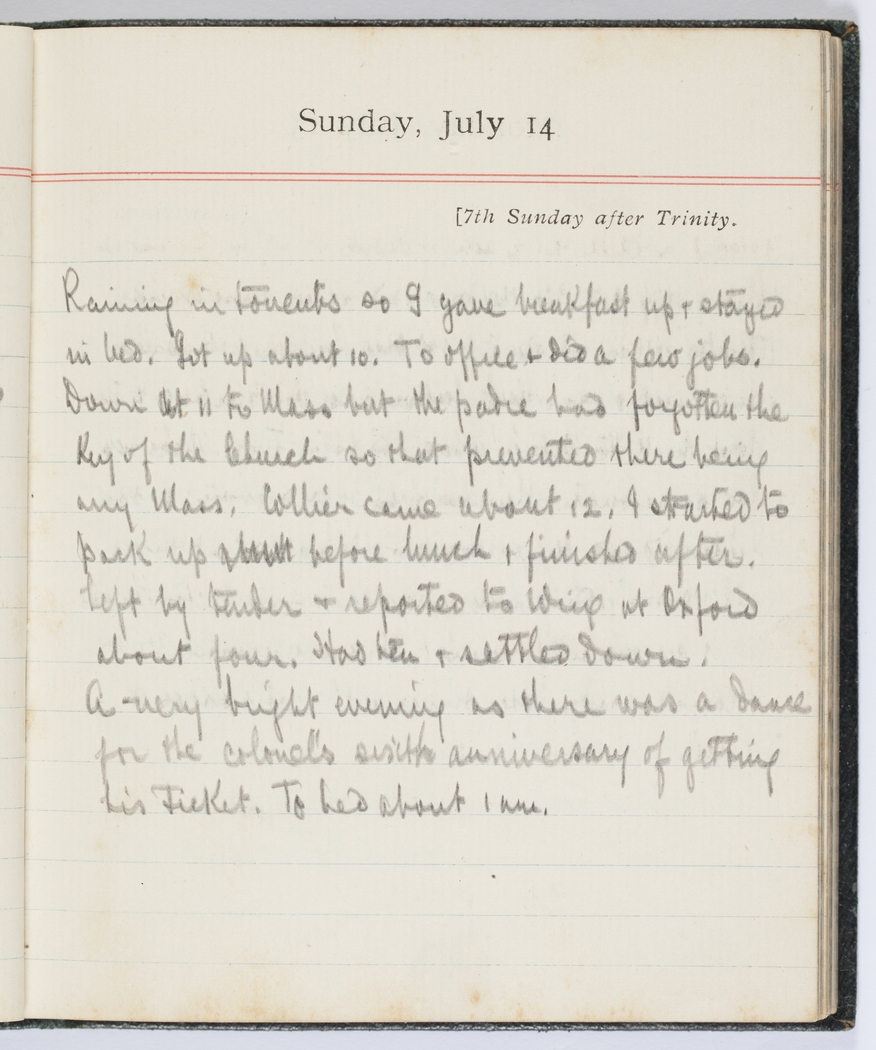 Sunday, July 14
[7th Sunday after Trinity.
Raining in torrents so I gave breakfast up + stayed
in bed. Got up about 10. To office + did a few jobs.
Down at 11 to Mass but the padre had forgotten the
Key of the Church so that prevented there being
any Mass. Collier came about 12. I started to
pack up before lunch + finished after.
Left by tender + reported to Wing at Oxford
about four. Had tea + settled down.
A very bright evening as there was a dance
for the colonel's sixth anniversary of getting
his Ticket. To bed about 1 am.